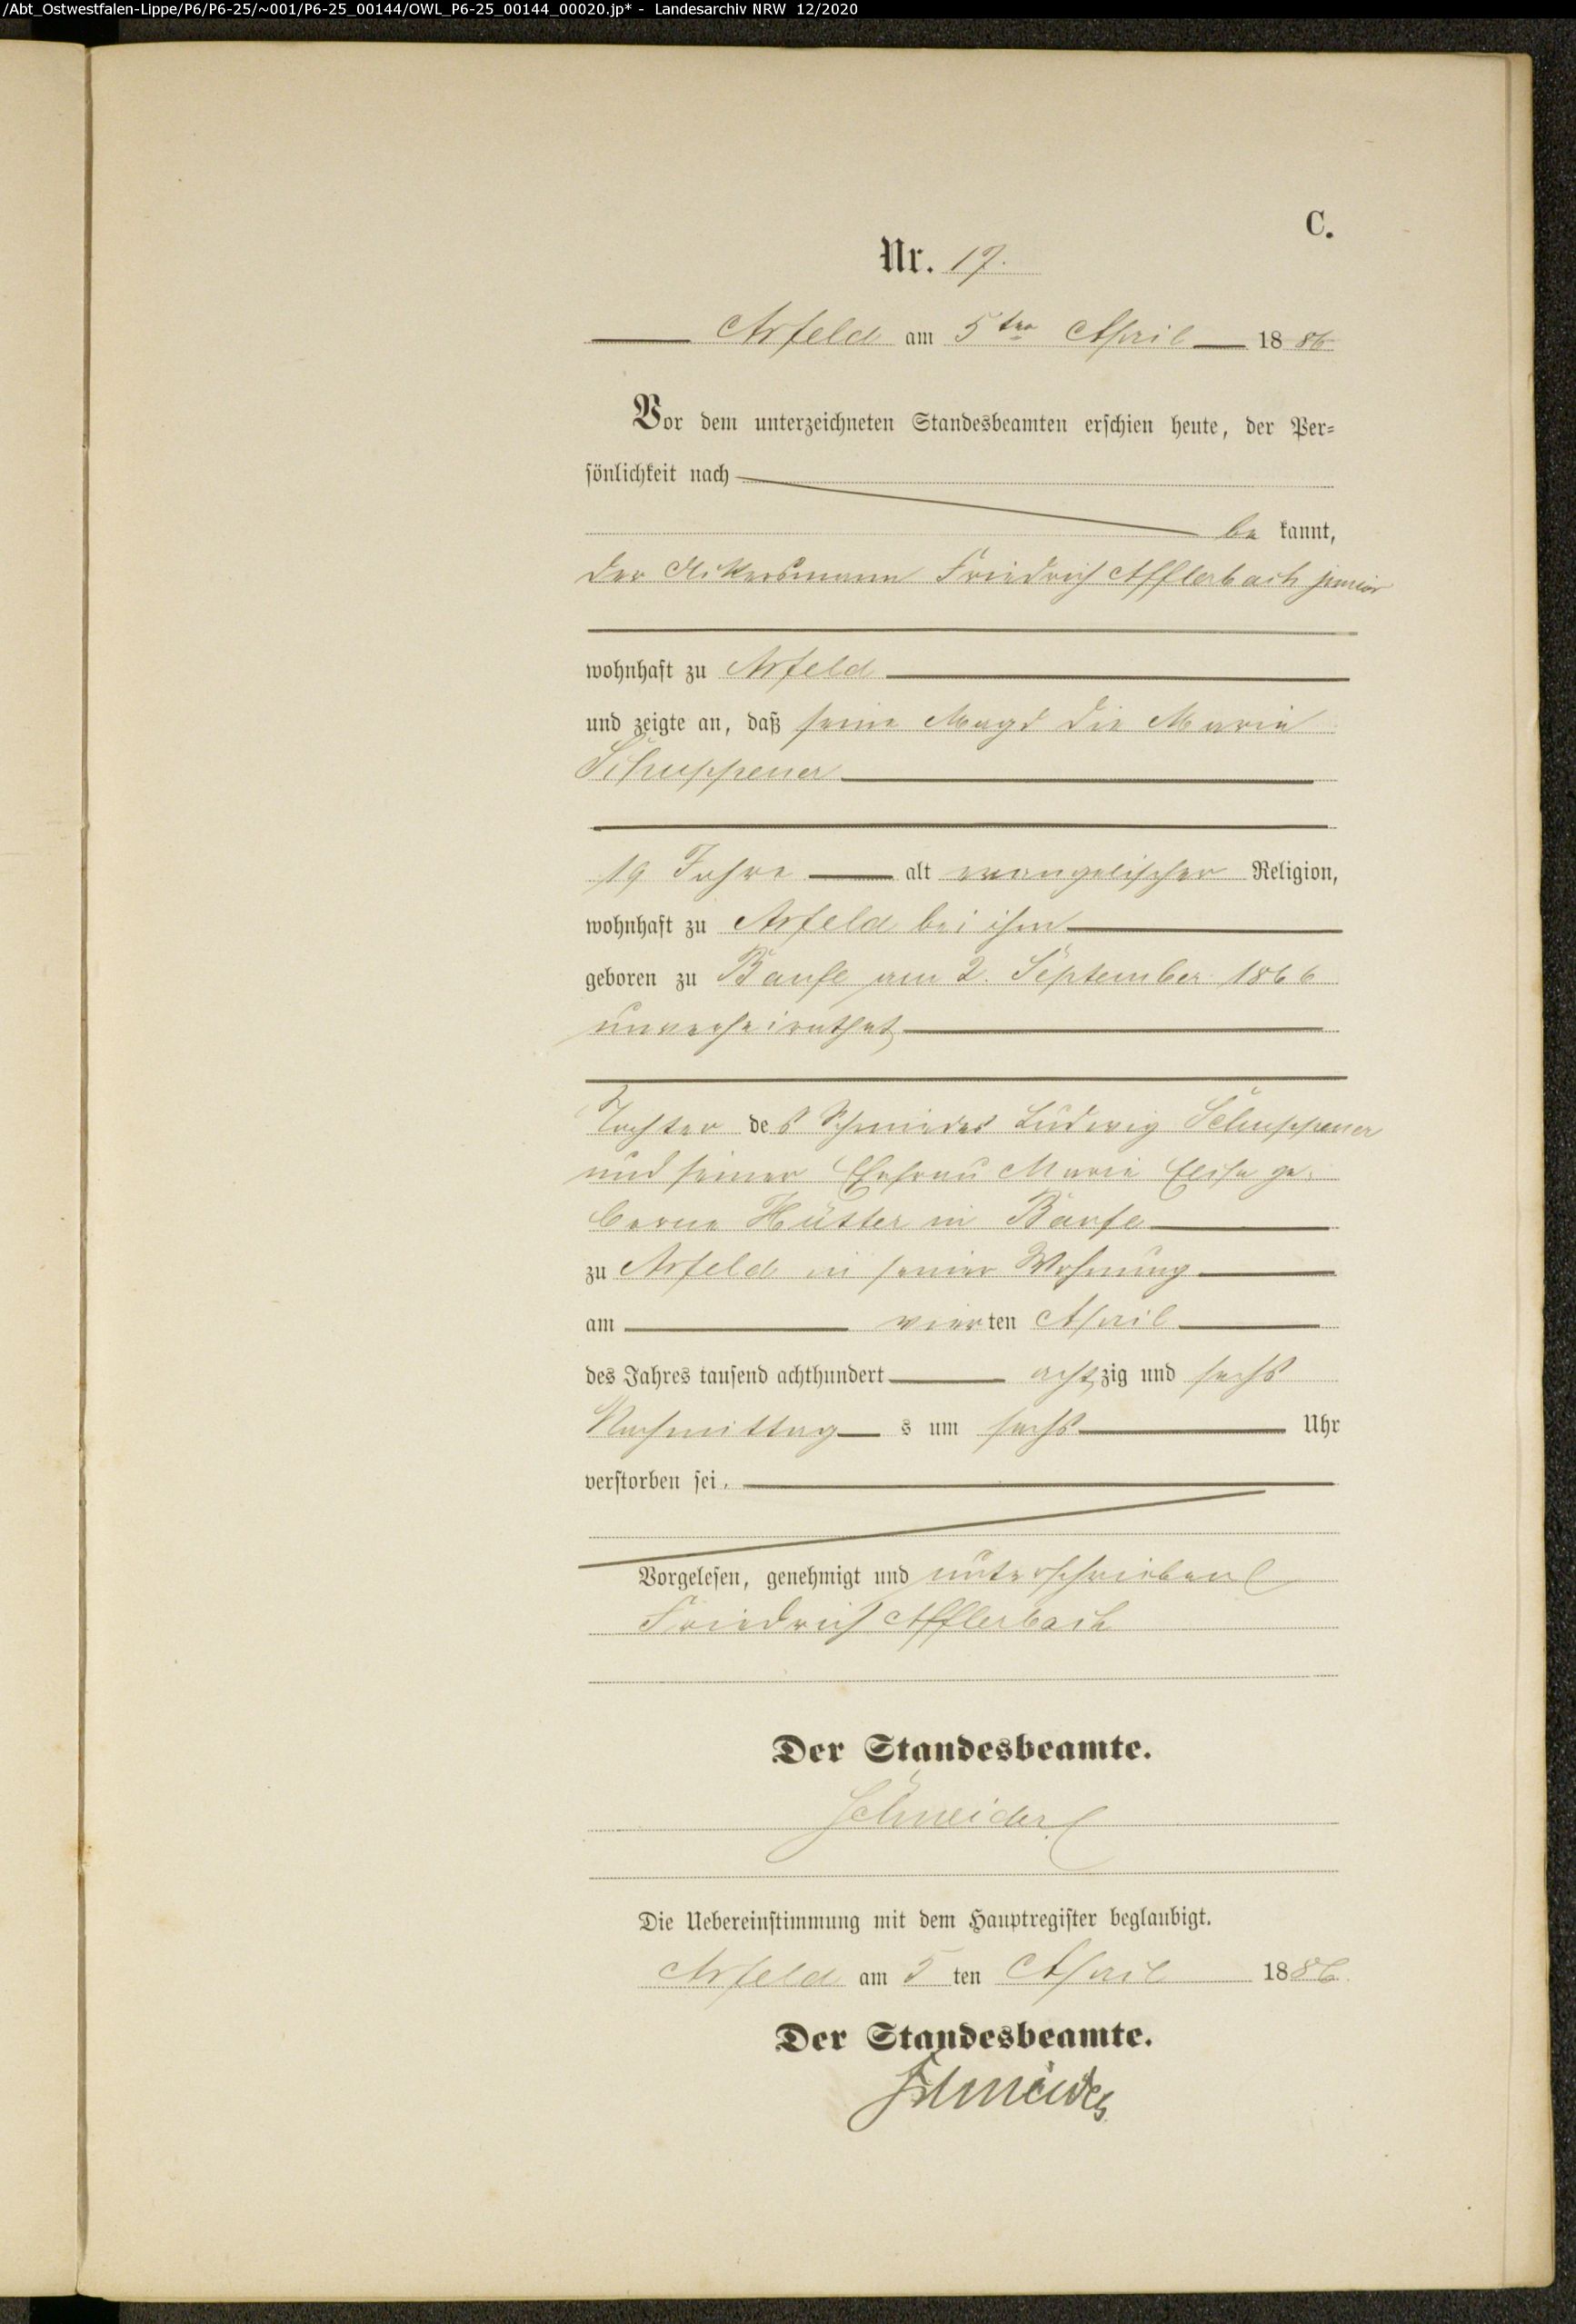 /Abt_Ostwestfalen-Lippe/P6/P6-25/~001/P6-25_00144/OWL_P6-25_00144_00020.jp* - Landesarchiv NRW 12/2020
C.
Nr. 17.
Arfeld am 5ten April 1886
Vor dem unterzeichneten Standesbeamten erschien heute, der Per-
sönlichkeit nach
be kannt,
der Ackersmann Friedrich Afflerbach junior
wohnhaft zu Arfeld
und zeigte an, daß seine Magd die Marie
Schuppener
19 Jahre alt evangelischer Religion,
wohnhaft zu Arfeld bei ihm
geboren zu Banfe am 2. September 1866
unverheirathet
Tochter des Schmiedes Ludwig Schuppener
und seiner Ehefrau Marie Elise ge-
borne Hütter in Banfe
zu Arfeld in seiner Wohnung
am vierten April
des Jahres tausend achthundert achtzig und sechs
Nachmittags um sechs Uhr
verstorben sei.
Vorgelesen, genehmigt und unterschrieben
Friedrich Afflerbach
Der Standesbeamte.
Schneider
Die Uebereinstimmung mit dem Hauptregister beglaubigt.
Arfeld am 5 ten April 1886.
Der Standesbeamte.
Schneider